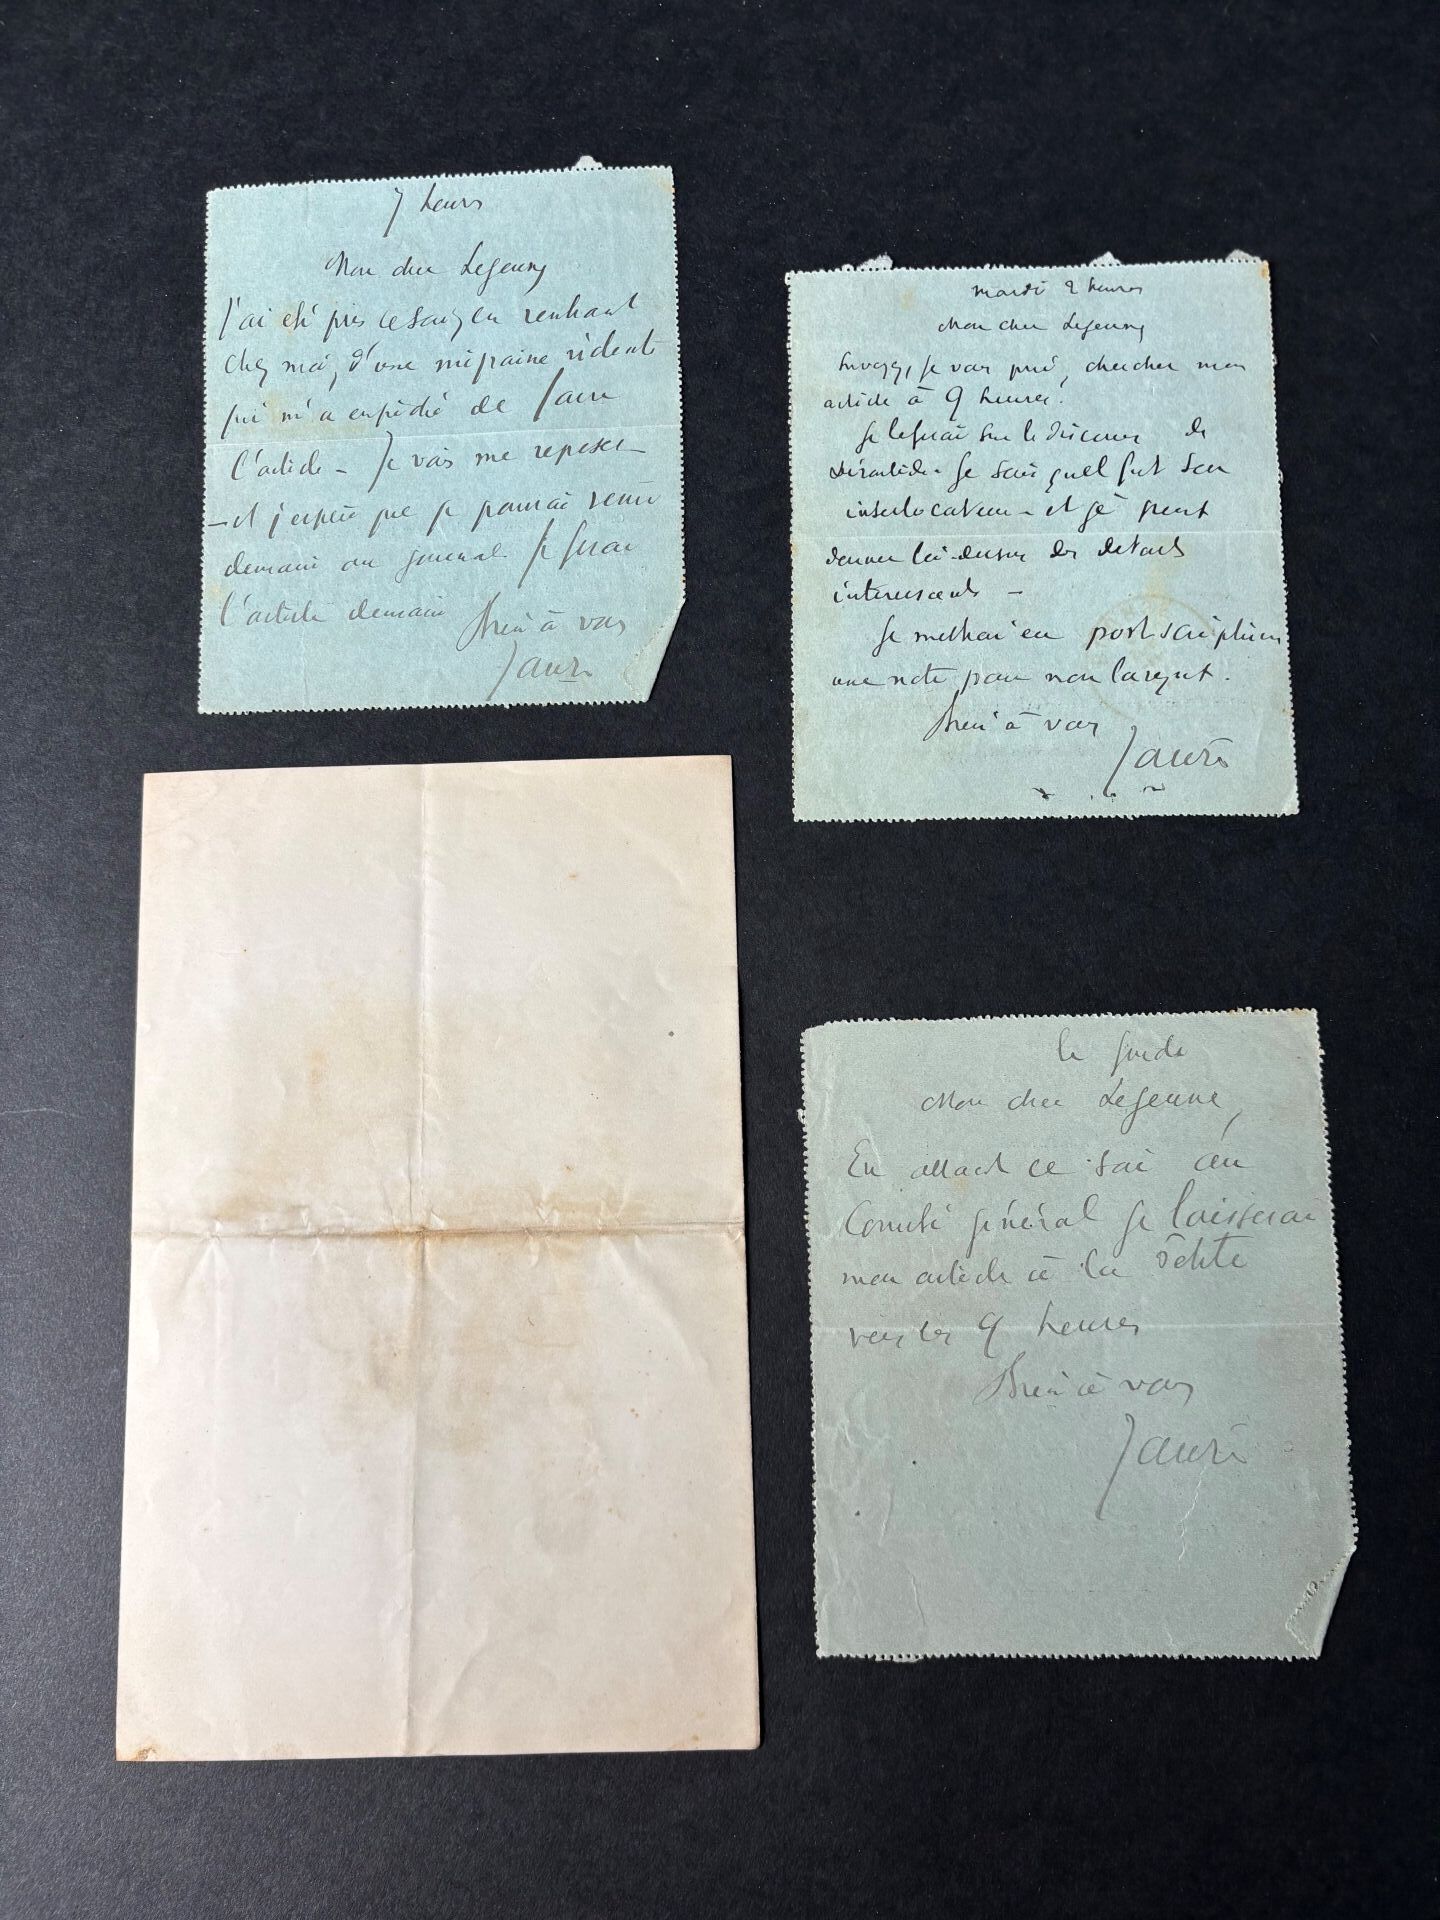 7 heures
Mon cher Lejeune
J'ai été pris ce soir, en rentrant
chez moi, d'une migraine violente
qui m'a empêché de faire
l'article – Je vais me reposer –
– et j'espère que je pourrai venir
demain au journal. Je ferai
l'article demain
Bien à vous
Jaurès
mardi 2 heures
Mon cher Lejeune
Envoyez, je vous prie, chercher mon
article à 9 heures.
Je le ferai sur le discours de
Déroulède. Je sais quel fut son
interlocuteur – et je peux
donner là-dessus des détails
intéressants –
Je mettrai en post scriptum
une note pour
Bien à vous
Jaurès
Mon cher Lejeune,
En allant ce soir au
Comité général je laisserai
mon article à la Petite
vers les 9 heures
Bien à vous
Jaurès